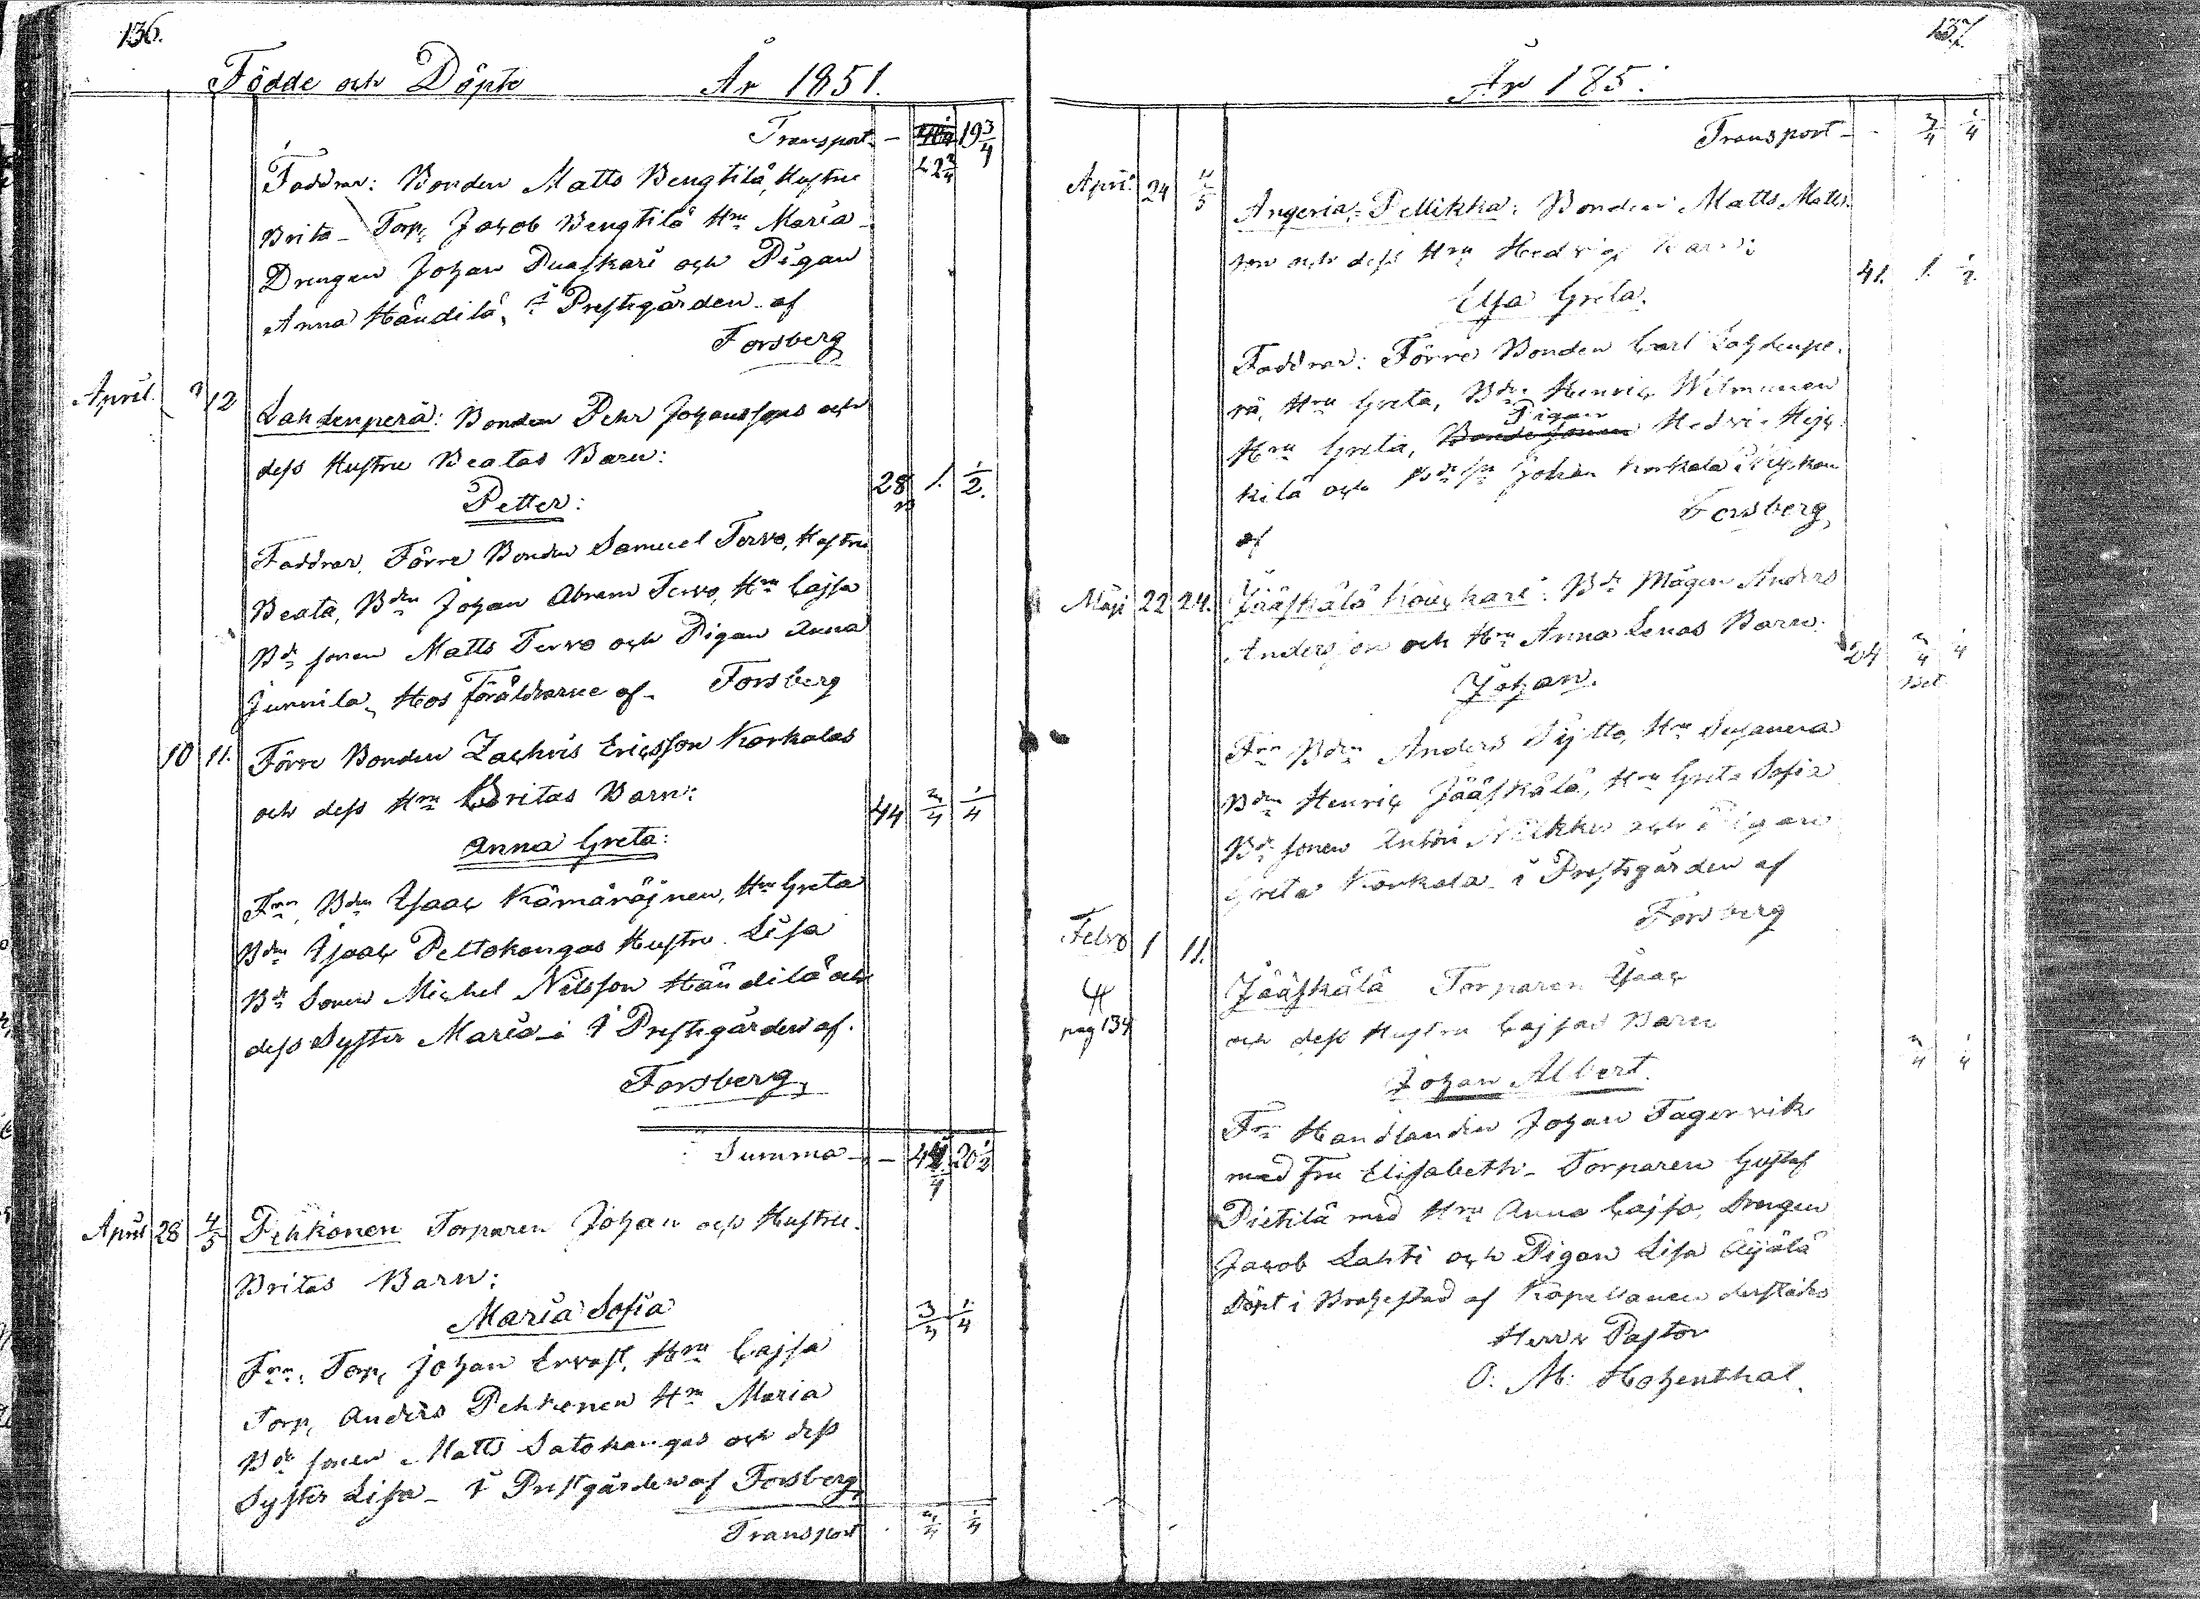 136.
Födde och Döpte År 1851.
Transport — 19 3/4
42 3/4
Faddrar: Bonden Matts Bengtilä, Hustru
Brita – Torp. Jacob Bengtilä Hru Maria –
Drengen Johan Puaskari och Pigan
Anna Händilä, i Prestgården af
Forsberg
April. 12 Lahdenperä: Bonden Pehr Johanssons och
dess Hustru Beatas Barn:
Petter: 28 1. 1/2.
Faddrar, Förre Bonden Samuel Tervo, Hustru
Beata, Bden Johan Abram Tervo, Hru Cajsa
Bde sonen Matts Tervo och Pigan Anna
Junnila, Hos föräldrarne af – Forsberg
10 11. Förre Bonden Zachris Ericsson Korkalas
och dess Hru Britas Barn:
44 3/4 1/4
Anna Greta:
Frr, Bden Isaac Kämäräjnen, Hru Greta
Bden Isaac Peltokangas Hustru Lisa
Bde Sonen Michel Nilsson Händilä och
dess Syster Maria – i Prestgården af.
Forsberg
Summa – – 20 1/2
April 28 4/5 Pehkonen Torparen Johan och Hustru
Britas Barn:
Maria Sofia 3/4 1/4
Frr, Torp, Johan Ervast, Hru Cajsa
Torp, Anders Pehkonen Hru Maria
Bde sonen Matts Satokangas och dess
Syster Lisa – i Prestgården af Forsberg
Transport 3/4 1/4
137.
År 185.
Transport – 3/4 1/4
April 24 4/5 Angeria, Pellikka: Bonden Matts Matts
son och dess Hru Hedvigs Barn:
41. 1. 1/2
Elsa Greta.
Faddrar: Förre Bonden Carl Lahdenpe-
rä, Hru Greta, Bden Henric Wilmunen
Pigan
Hru Greta, Bondesonen Hedvig
kilä och Bde sn Johan Korkala i
af Forsberg
Maji 22 24. Jääskälä Kouckari: Bde Mågen Anders
Andersson och Hru Anna Lenas Barn:
24 3/4 1/4
Johan.
Frr Bden Anders Hru Susanna
Bden Henric Jääskälä, Hru Greta Sofia
Bde sonen och Pigan
Greta Korkala i Prestgården af
Forsberg
Febr 1 11.
Jääskälä Torparen Isaac
pag 134
och dess Hustru Cajsas Barn
3/4 1/4
Johan Albert.
Frr Handlanden Johan Fagervik
med Fru Elisabeth – Torparen Gustaf
Pietilä med Hru Anna Cajsa, Drengen
Jacob Lahti och Pigan Lisa Äijälä
Döpt i Brahestad af Kapellanen derstädes
Herr Pastor
O: M: Hohenthal.